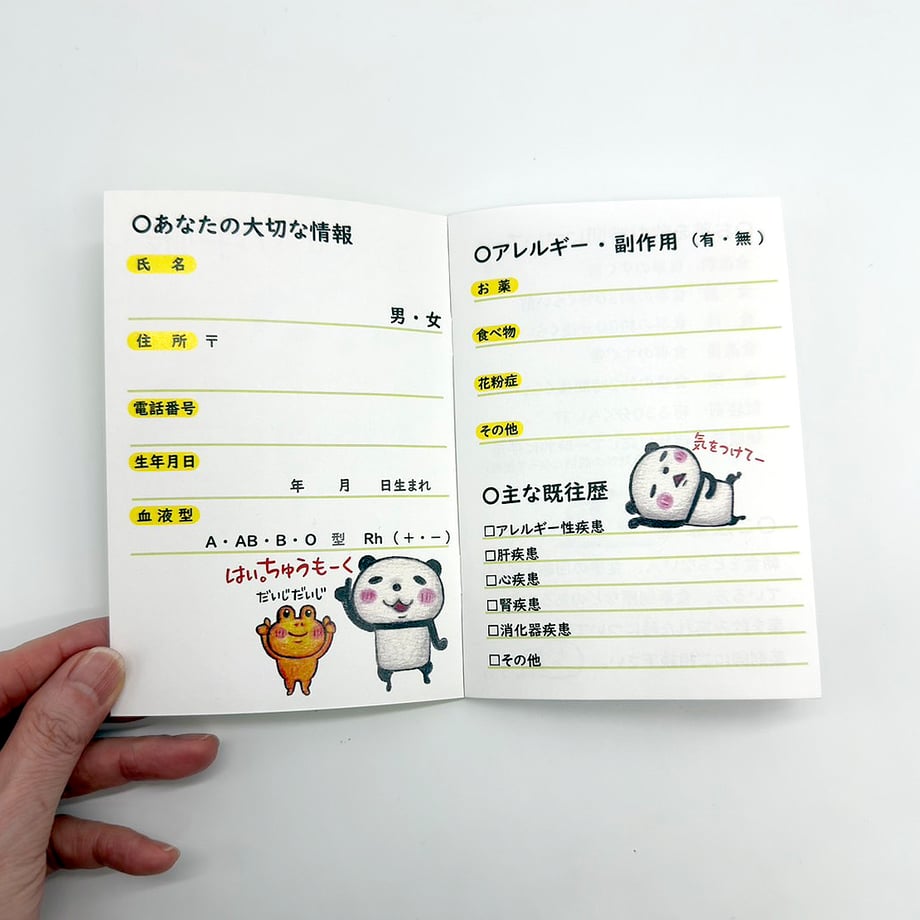 〇あなたの大切な情報
氏 名
男・女
住 所 〒
電話番号
生年月日
年 月 日生まれ
血液型
A・AB・B・O 型 Rh (+・−)
はい。ちゅうもーく
だいじだいじ
〇アレルギー・副作用(有・無)
お薬
食べ物
花粉症
その他
気をつけてー
〇主な既往歴
□アレルギー性疾患
□肝疾患
□心疾患
□腎疾患
□消化器疾患
□その他